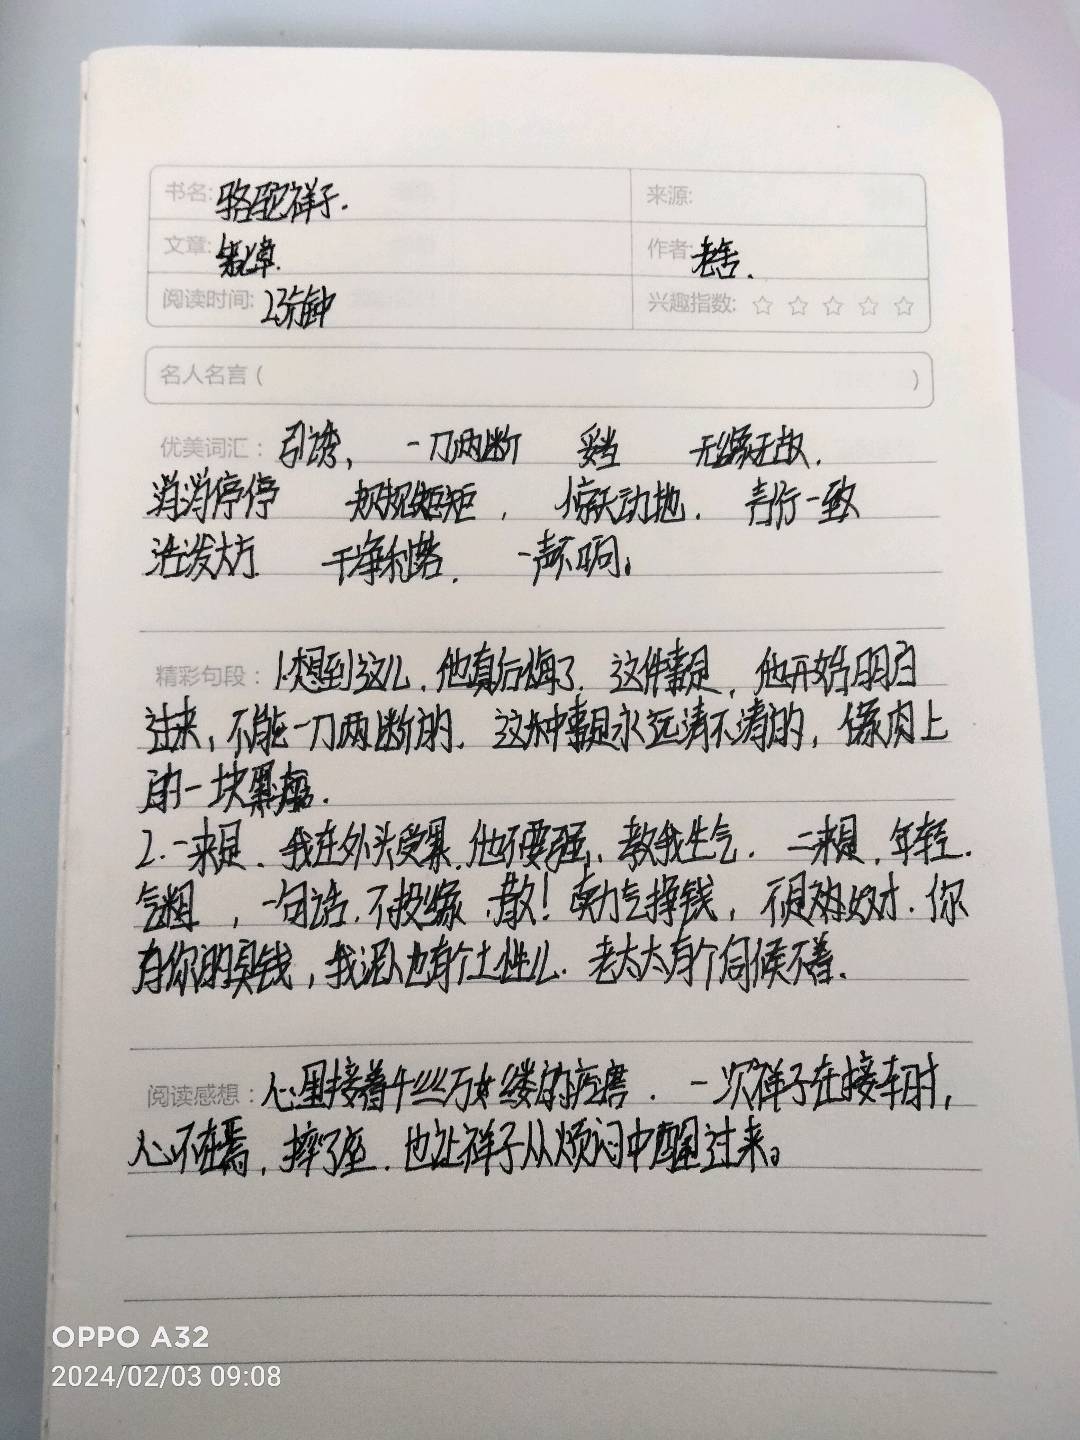 书名: 骆驼祥子.
来源:
文章: 第七章.
作者: 老舍.
阅读时间: 23分钟
兴趣指数: ☆ ☆ ☆ ☆ ☆
名人名言 ( )
优美词汇: 引诱, 一刀两断 妥当 无缘无故.
消消停停 规规矩矩, 惊天动地. 言行一致
活泼大方 干净利落. 一声不响。
精彩句段: 1.想到这儿, 他真后悔了. 这件事是, 他开始明白
过来, 不能一刀两断的. 这种事是永远清不清的, 像肉上
的一块黑瘢.
2.一来是. 我在外头受累, 他不要强, 教我生气. 二来是, 年轻.
气粗, 一句话. 不投缘, 散! 卖力气挣钱, 不是奴才. 你
有你的臭钱, 我泥人也有个土性儿. 老太太有个伺候不着.
阅读感想: 心里接着千丝万缕的
一次祥子在接车时,
心不在焉, 摔了座. 也让祥子从烦闷中醒过来。
OPPO A32
2024/02/03 09:08